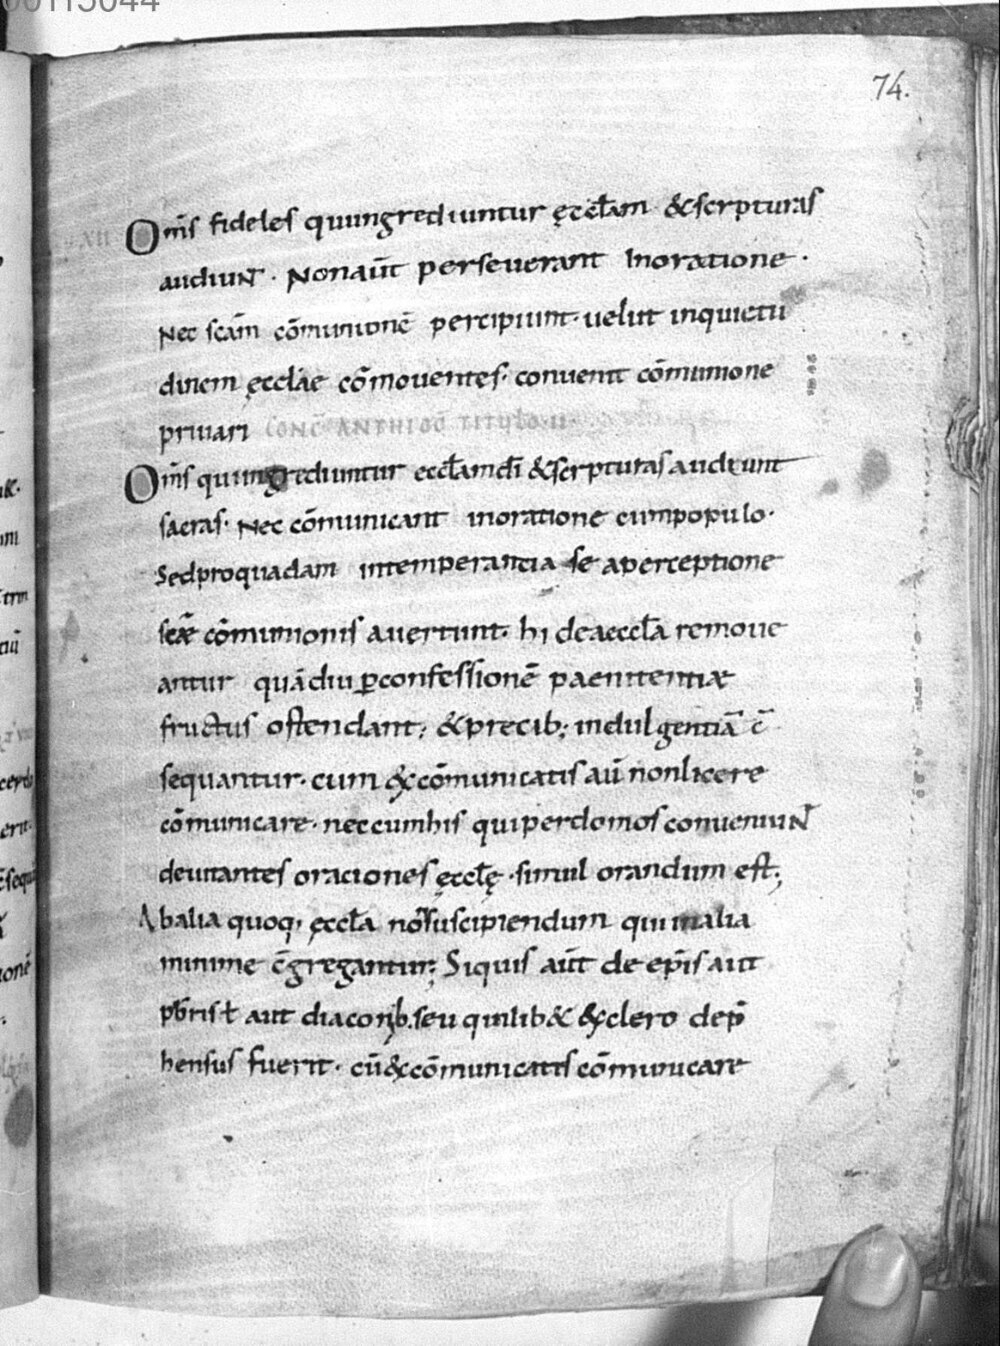 00115044
74.
XII
Om̄s fideles quiingrediuntur ęccłam &scrpturas
audiuNT. Nonaūt perseuerant Inoratione.
Nec scām cōmunionē percipiunt. uelut inquietu
dinem ęcclāe cōmouentes. conuenit cōmunione
priuari CONC̄ ANTHIOC̄ TITULO II
Om̄s quiingrediuntur eccłamdī &scrpturas audiunt
sacras. Nec cōmunicant inoratione cumpopulo.
Sedproquadam intemperantia se aperceptione
scǣ cōmunionis auertunt. hi deaeccła remoue
antur quādiu ꝑconfessionē paenitentiæ
fructus ostendant; &precib; indulgentiā c̄
sequantur. cum &cōmunicatis aū nonlicere
cōmunicare. neccumhis quiperdomos conueniuNT
deuitantes oraciones ęccłę. simul orandum est;
Abalia quoq, ęccła nōsuscipiendum qui inalia
minime c̄gregantur; Siquis aūt de ep̄is aut
pb̄rist aut diaconib. seu quilib& &clero dep̄
hensus fuerit. cū&cōmunicatis cōmunicare